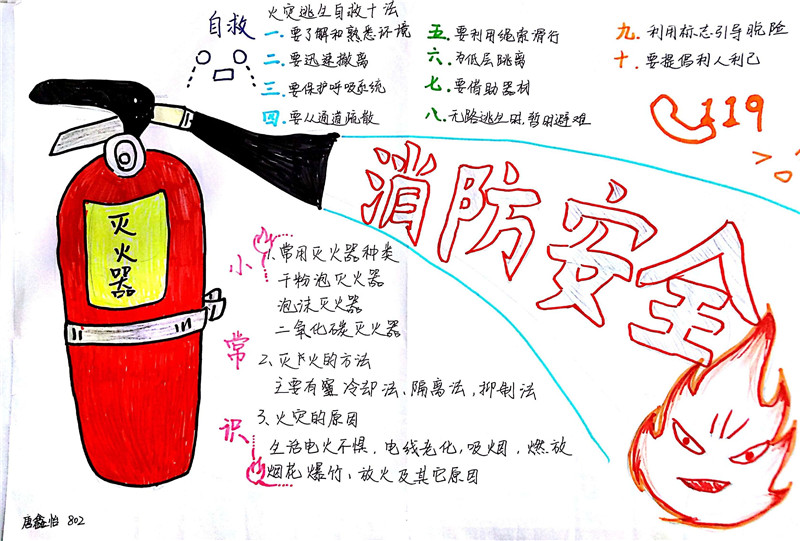 自救
火灾逃生自救十法
一.要了解和熟悉环境
二.要迅速撤离
三.要保护呼吸系统
四.要从通道疏散
五.要利用绳索滑行
六.为低层跳离
七.要借助器材
八.无路逃生时,暂时避难
九.利用标志引导脱险
十.要提倡利人利己
119
消防安全
灭火器
小常识
1.常用灭火器种类
干粉泡灭火器
泡沫灭火器
二氧化碳灭火器
2.灭火的方法
主要有窒冷却法、隔离法,抑制法
3.火灾的原因
生活电火不惧,电线老化,吸烟,燃放
烟花爆竹、放火及其它原因
唐鑫怡 802